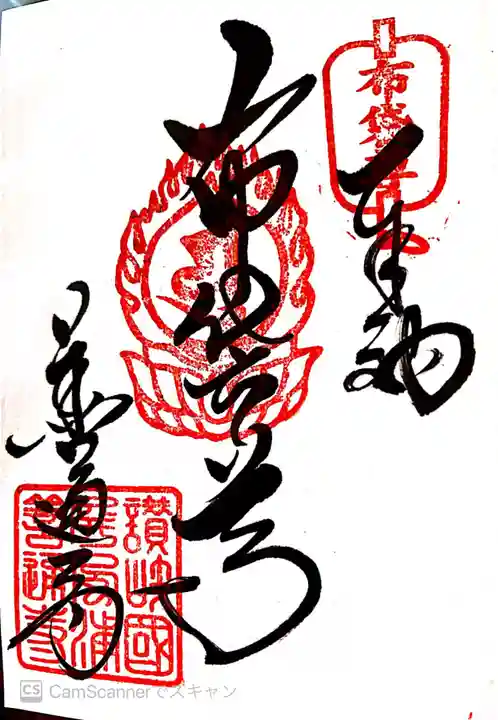 奉納
布袋尊
布袋尊
善通寺
讃岐國
屏風浦
善通寺
CS CamScannerでスキャン